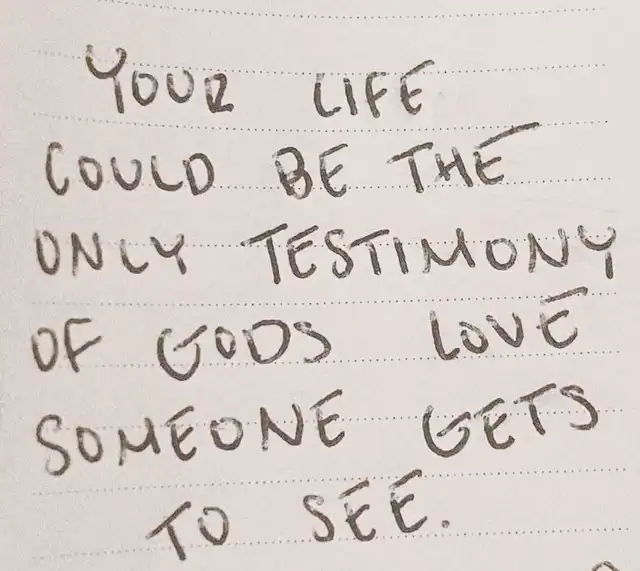 YOUR LIFE
COULD BE THE
ONLY TESTIMONY
OF GODS LOVE
SOMEONE GETS
TO SEE.